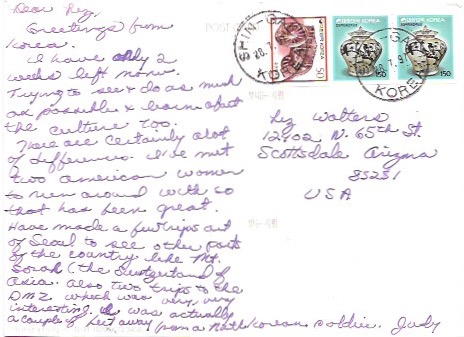 Dear Liz,
Greetings from
Korea.
I have only 2
weeks left now.
Trying to see & do as much
as possible & learn about
the culture too.
There are certainly alot
of differences. I've met
two american women
to run around with so
that has been great.
Have made a few trips out
of Seoul to see other parts
of the country like Mt.
Sorak (the Switzerland of
Asia. Also two trips to the
DMZ which was very, very
interesting. I was actually
a couple of feet away from a North Korean soldier. Judy
SHIN-GA
KOREA
50
KOREA
150
KOREA
150
KORE
Liz Walters
12402 N. 65th St.
Scottsdale Arizona
85251
USA